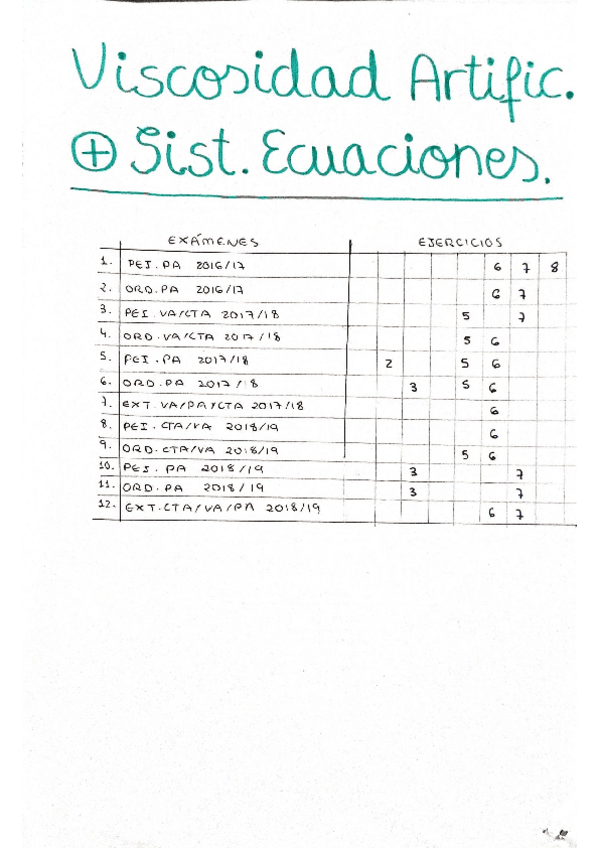 Viscosidad Artific.
⊕ Sist. Ecuaciones.
EXÁMENES EJERCICIOS
1. PEI.PA 2016/17 6 7 8
2. ORD.PA 2016/17 6 7
3. PEI.VA/CTA 2017/18 5 7
4. ORD.VA/CTA 2017/18 5 6
5. PEI.PA 2017/18 2 5 6
6. ORD.PA 2017/18 3 5 6
7. EXT.VA/PA/CTA 2017/18 6
8. PEI.CTA/VA 2018/19 6
9. ORD.CTA/VA 2018/19 5 6
10. PEI.PA 2018/19 3 7
11. ORD.PA 2018/19 3 7
12. EXT.CTA/VA/PA 2018/19 6 7